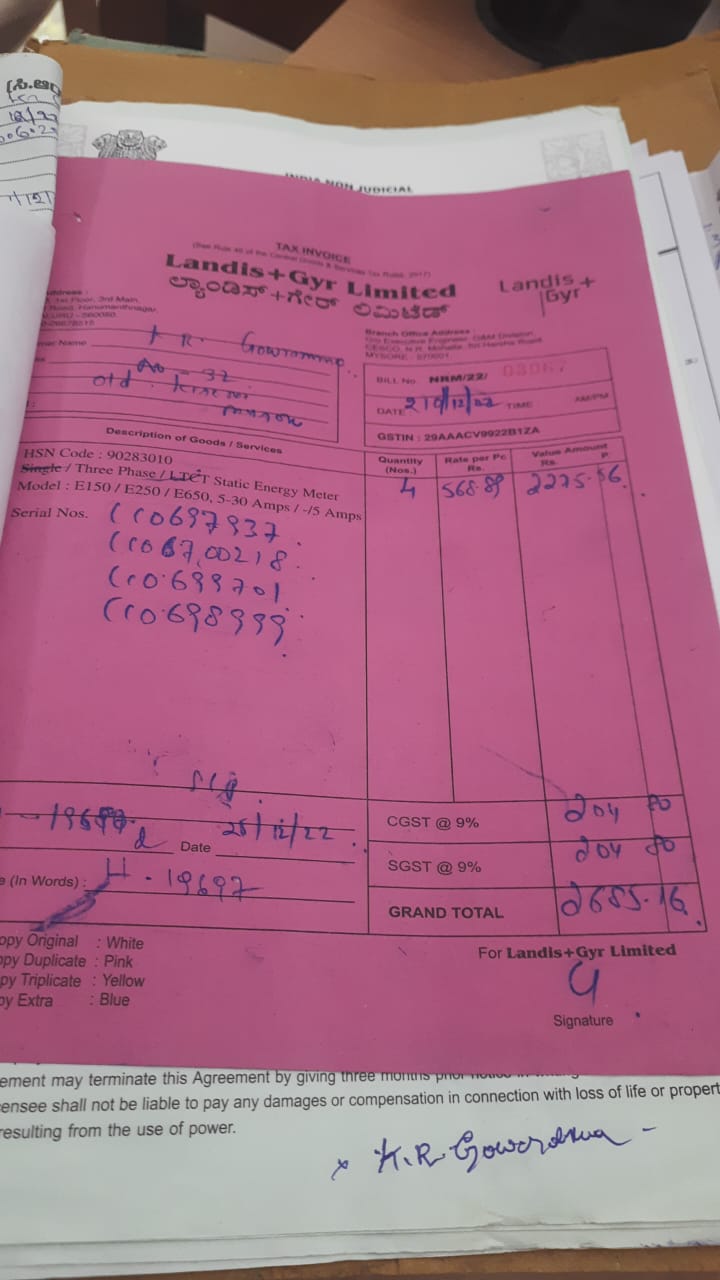 (ಸಿ.ಆರ
INDIA NON JUDICIAL
TAX INVOICE
Landis+Gyr Limited
ಲ್ಯಾಂಡಿಸ್+ಗೇರ್ ಲಿಮಿಟೆಡ್
Landis+
Gyr
1st Floor, 3rd Main,
Road, Hanumanthnagar,
Branch Office Address :
O/o Executive Engineer, O&M Division
CESCO, N.R. Mohalla, Sri Harsha Road
MYSORE - 570001
K R. Gowramma
No - 37
old
BILL No. NRM/22/ 03067
DATE 21/12/22 TIME AM/PM
GSTIN : 29AAACV9922B1ZA
Description of Goods / Services
Quantity (Nos.)
Rate per Pc Rs.
Value Amount Rs. P.
HSN Code : 90283010
Single / Three Phase / LTCT Static Energy Meter
Model : E150 / E250 / E650, 5-30 Amps / -/5 Amps
4 568.89 2275.56
Serial Nos.
697937
6700218
699701
698999
CGST @ 9% 204 80
Date 28/12/22
SGST @ 9% 204 80
(In Words) : H - 19697
GRAND TOTAL 2685.16
opy Original : White
opy Duplicate : Pink
py Triplicate : Yellow
py Extra : Blue
For Landis+Gyr Limited
Signature
ement may terminate this Agreement by giving three months prior
ensee shall not be liable to pay any damages or compensation in connection with loss of life or propert
resulting from the use of power.
x K.R. Gowramma